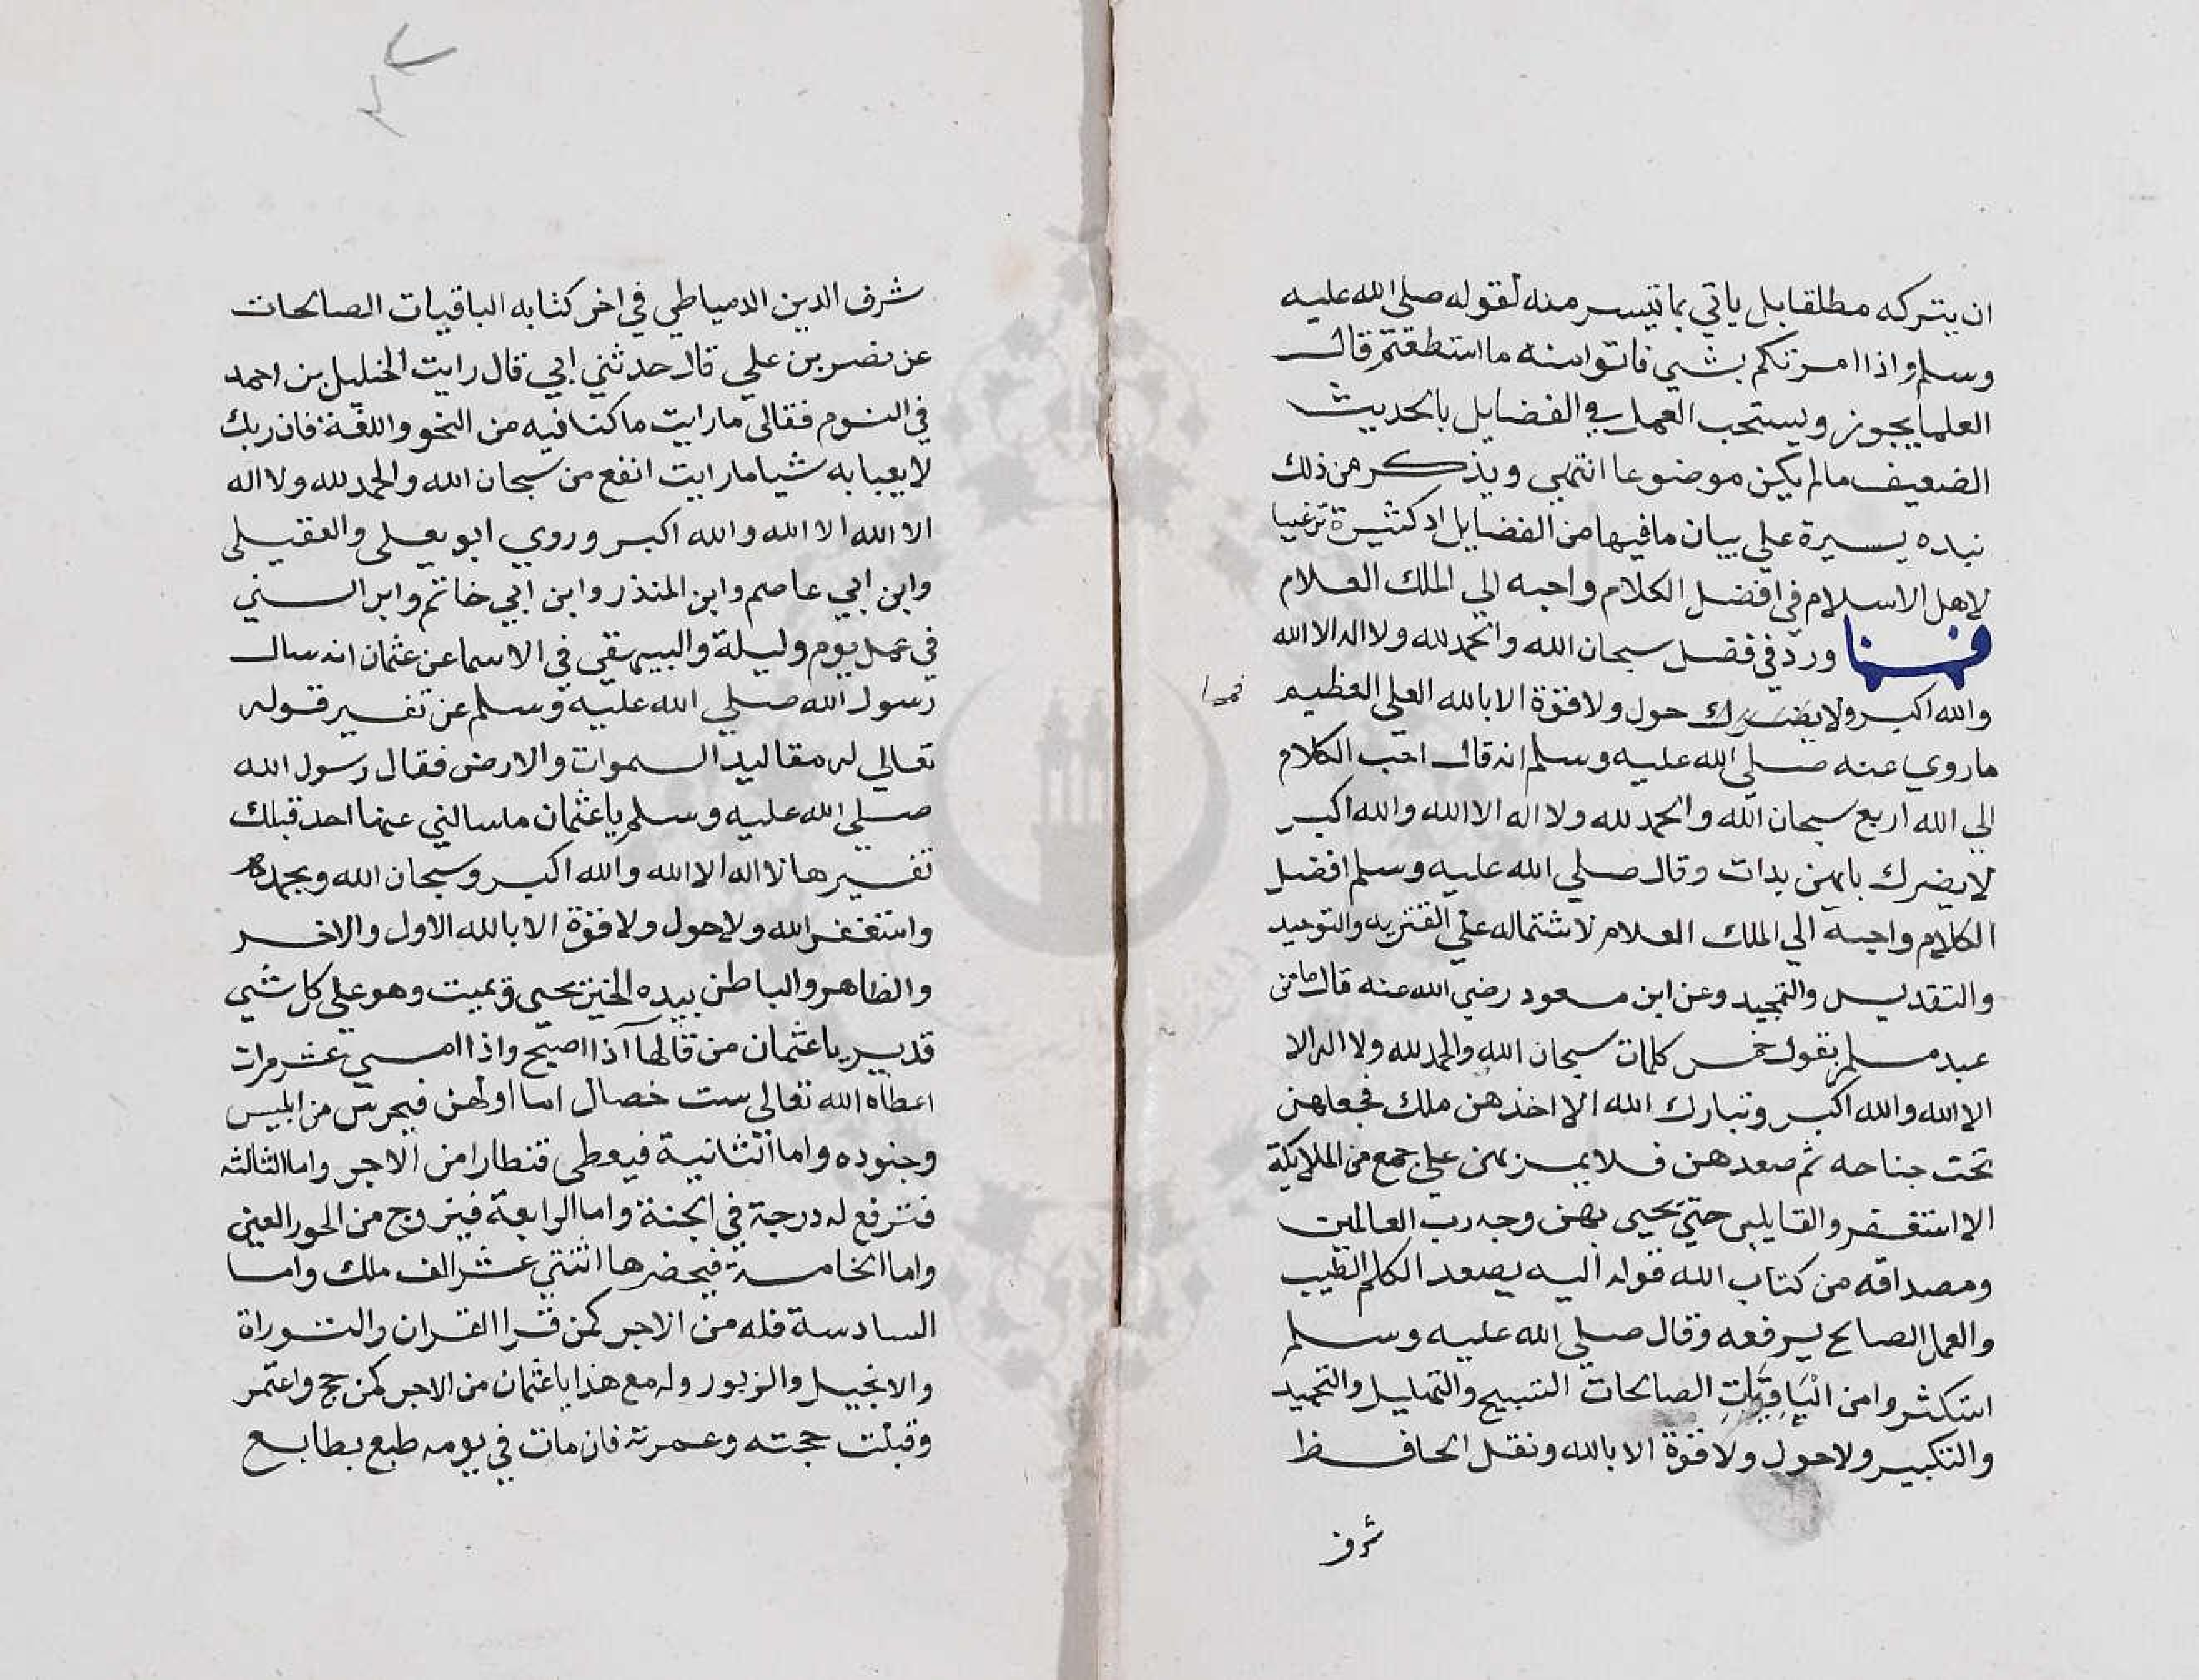 ان يتركه مطلقا بل ياتي بما تيسر منه لقوله صلى الله عليه
وسلم واذا امرتكم بشي فاتوا منه ما استطعتم قال
العلما يجوز ويستحب العمل في الفضايل بالحديث
الضعيف ما لم يكن موضوعا انتهي ويذكر من ذلك
نبده يسيرة علي بيان ما فيها من الفضايل اد كثيرة ترغيبا
لاهل الاسلام في افضل الكلام واحبه الي الملك العلام
فمنها ورد في فضل سبحان الله والحمد لله ولا اله الا الله
والله اكبر ولا حول ولا قوة الا بالله العلي العظيم
ما روي عنه صلي الله عليه وسلم انه قال احب الكلام
الي الله اربع سبحان الله والحمد لله ولا اله الا الله والله اكبر
لا يضرك بايهن بدات وقال صلي الله عليه وسلم افضل
الكلام واحبه الي الملك العلام لاشتماله علي التنزيه والتوحيد
والتقديس والتمجيد وعن ابن مسعود رضي الله عنه قال ما من
عبد مسلم يقول خمس كلمات سبحان الله والحمد لله ولا اله الا
الا الله والله اكبر وتبارك الله الا اخذهن ملك فجعلهن
تحت جناحه ثم صعد هن فلا يمر بهن علي جمع من الملايكة
الا استغفر والقايلهن حتي يحيى بهن وجه رب العالمين
ومصداقه من كتاب الله قوله اليه يصعد الكلم الطيب
والعمل الصالح يرفعه وقال صلي الله عليه وسلم
استكثروا من الْبَاقِيَاتِ الصالحات التسبيح والتهليل والتحميد
والتكبير ولا حول ولا قوة الا بالله ونقل الحافظ
شرف
شرف الدين الدمياطي في اخر كتابه الباقيات الصالحات
عن نصر بن علي قال حدثني ابي قال رايت الخليل بن احمد
في النوم فقال لي ما رايت ما كنا فيه من النحو واللغة فان ربك
لا يعبا به شيا ما رايت انفع من سبحان الله والحمد لله ولا اله
الا الله الا الله والله اكبر وروي ابو يعلى والعقيلى
وابن ابي عاصم وابن المنذر وابن ابي حاتم وابن السني
في عمل يوم وليلة والبيهقي في الاسما عن عثمان انه سال
رسول الله صلي الله عليه وسلم عن تفسير قوله
تعالي له مقاليد السموات والارض فقال رسول الله
صلي الله عليه وسلم يا عثمان ما سالني عنها احد قبلك
تفسيرها لا اله الا الله والله اكبر وسبحان الله وبحمده
واستغفر الله ولا حول ولا قوة الا بالله الاول والاخر
والظاهر والباطن بيده الخير يحيى ويميت وهو علي كل شي
قدير يا عثمان من قالها اذا اصبح واذا امسي عشر مرات
اعطاه الله تعالي ست خصال اما اولهن فيحرس من ابليس
وجنوده واما الثانية فيعطى قنطارا من الاجر واما الثالثه
فترفع له درجة في الجنة واما الرابعة فيزوج من الحور العين
واما الخامسة فيحضرها اثنتي عشر الف ملك واما
السادسة فله من الاجر كمن قرا القران والتوراة
والانجيل والزبور وله مع هذا يا عثمان من الاجر كمن حج واعتمر
وقبلت حجته وعمرته فان مات في يومه طبع بطابع